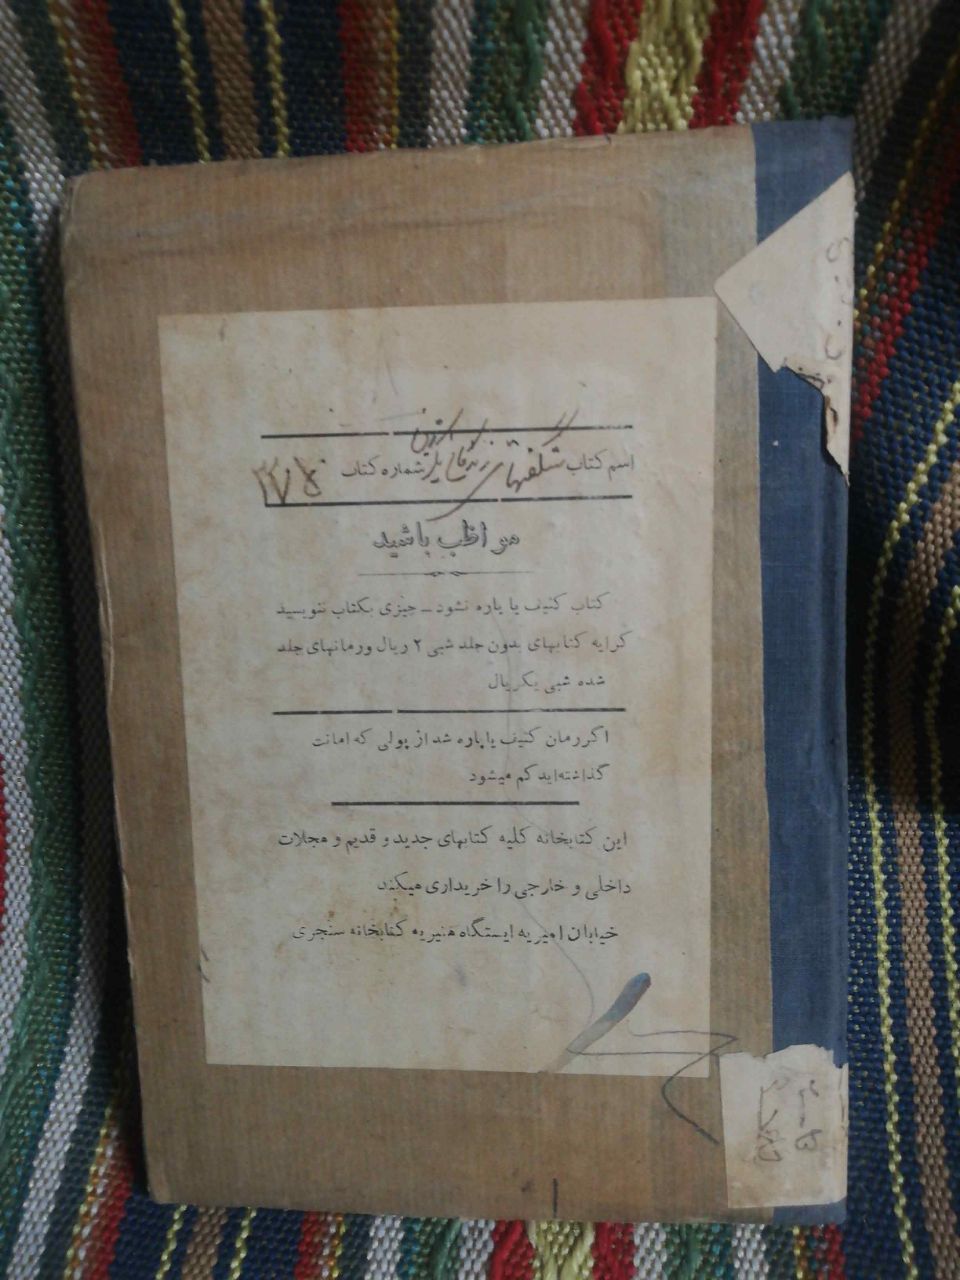 اسم کتاب شگفتیهای زندگی شماره کتاب
مواظب باشید
کتاب کثیف یا پاره نشود ـ چیزی بکتاب ننویسید
کرایه کتابهای بدون جلد شبی ۲ ریال ورمانهای جلد
شده شبی یکریال
اگررمان کثیف یاپاره شد از پولی که امانت
گذاشته‌اید کم میشود
این کتابخانه کلیه کتابهای جدید و قدیم و مجلات
داخلی و خارجی را خریداری میکند
خیابان امیریه ایستگاه منیریه کتابخانه سنجری